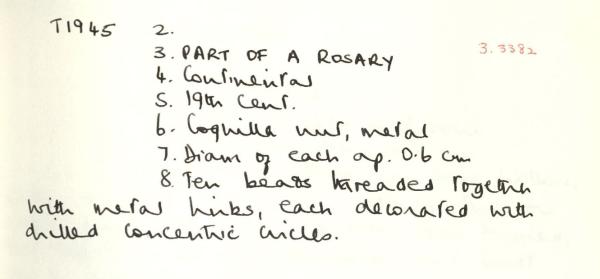 T1945 2.
3. PART OF A ROSARY 3.3382
4. Continental
5. 19th Cent.
6. Coquilla nut, metal
7. Diam of each ap. 0.6 cm
8. Ten beads threaded together
with metal links, each decorated with
drilled concentric circles.